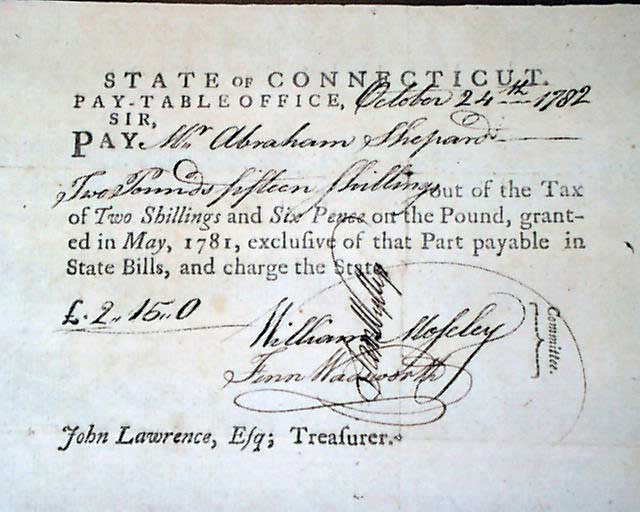 STATE OF CONNECTICUT.
PAY-TABLE OFFICE, October 24th 1782
SIR,
PAY Mr Abraham Shepard
Two Pounds fifteen Shillings out of the Tax
of Two Shillings and Six Pence on the Pound, grant-
ed in May, 1781, exclusive of that Part payable in
State Bills, and charge the State
£. 2,, 15,, 0
William Moseley
Fenn Wadsworth
Committee.
John Lawrence, Eſq; Treaſurer.